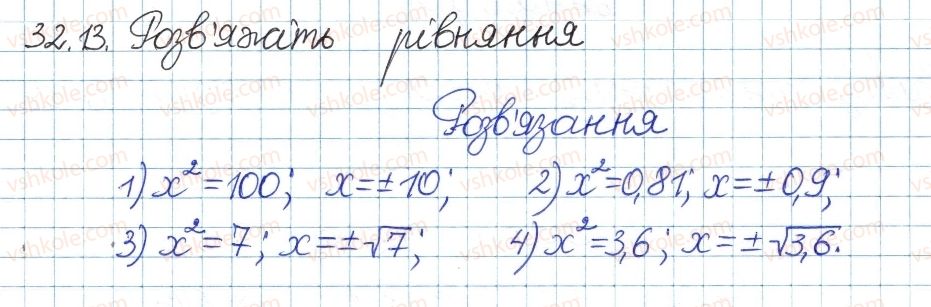 32.13. Розв'яжіть рівняння
Розв'язання
1) x²=100; x=±10; 2) x²=0,81; x=±0,9;
3) x²=7; x=±√7; 4) x²=3,6; x=±√3,6.